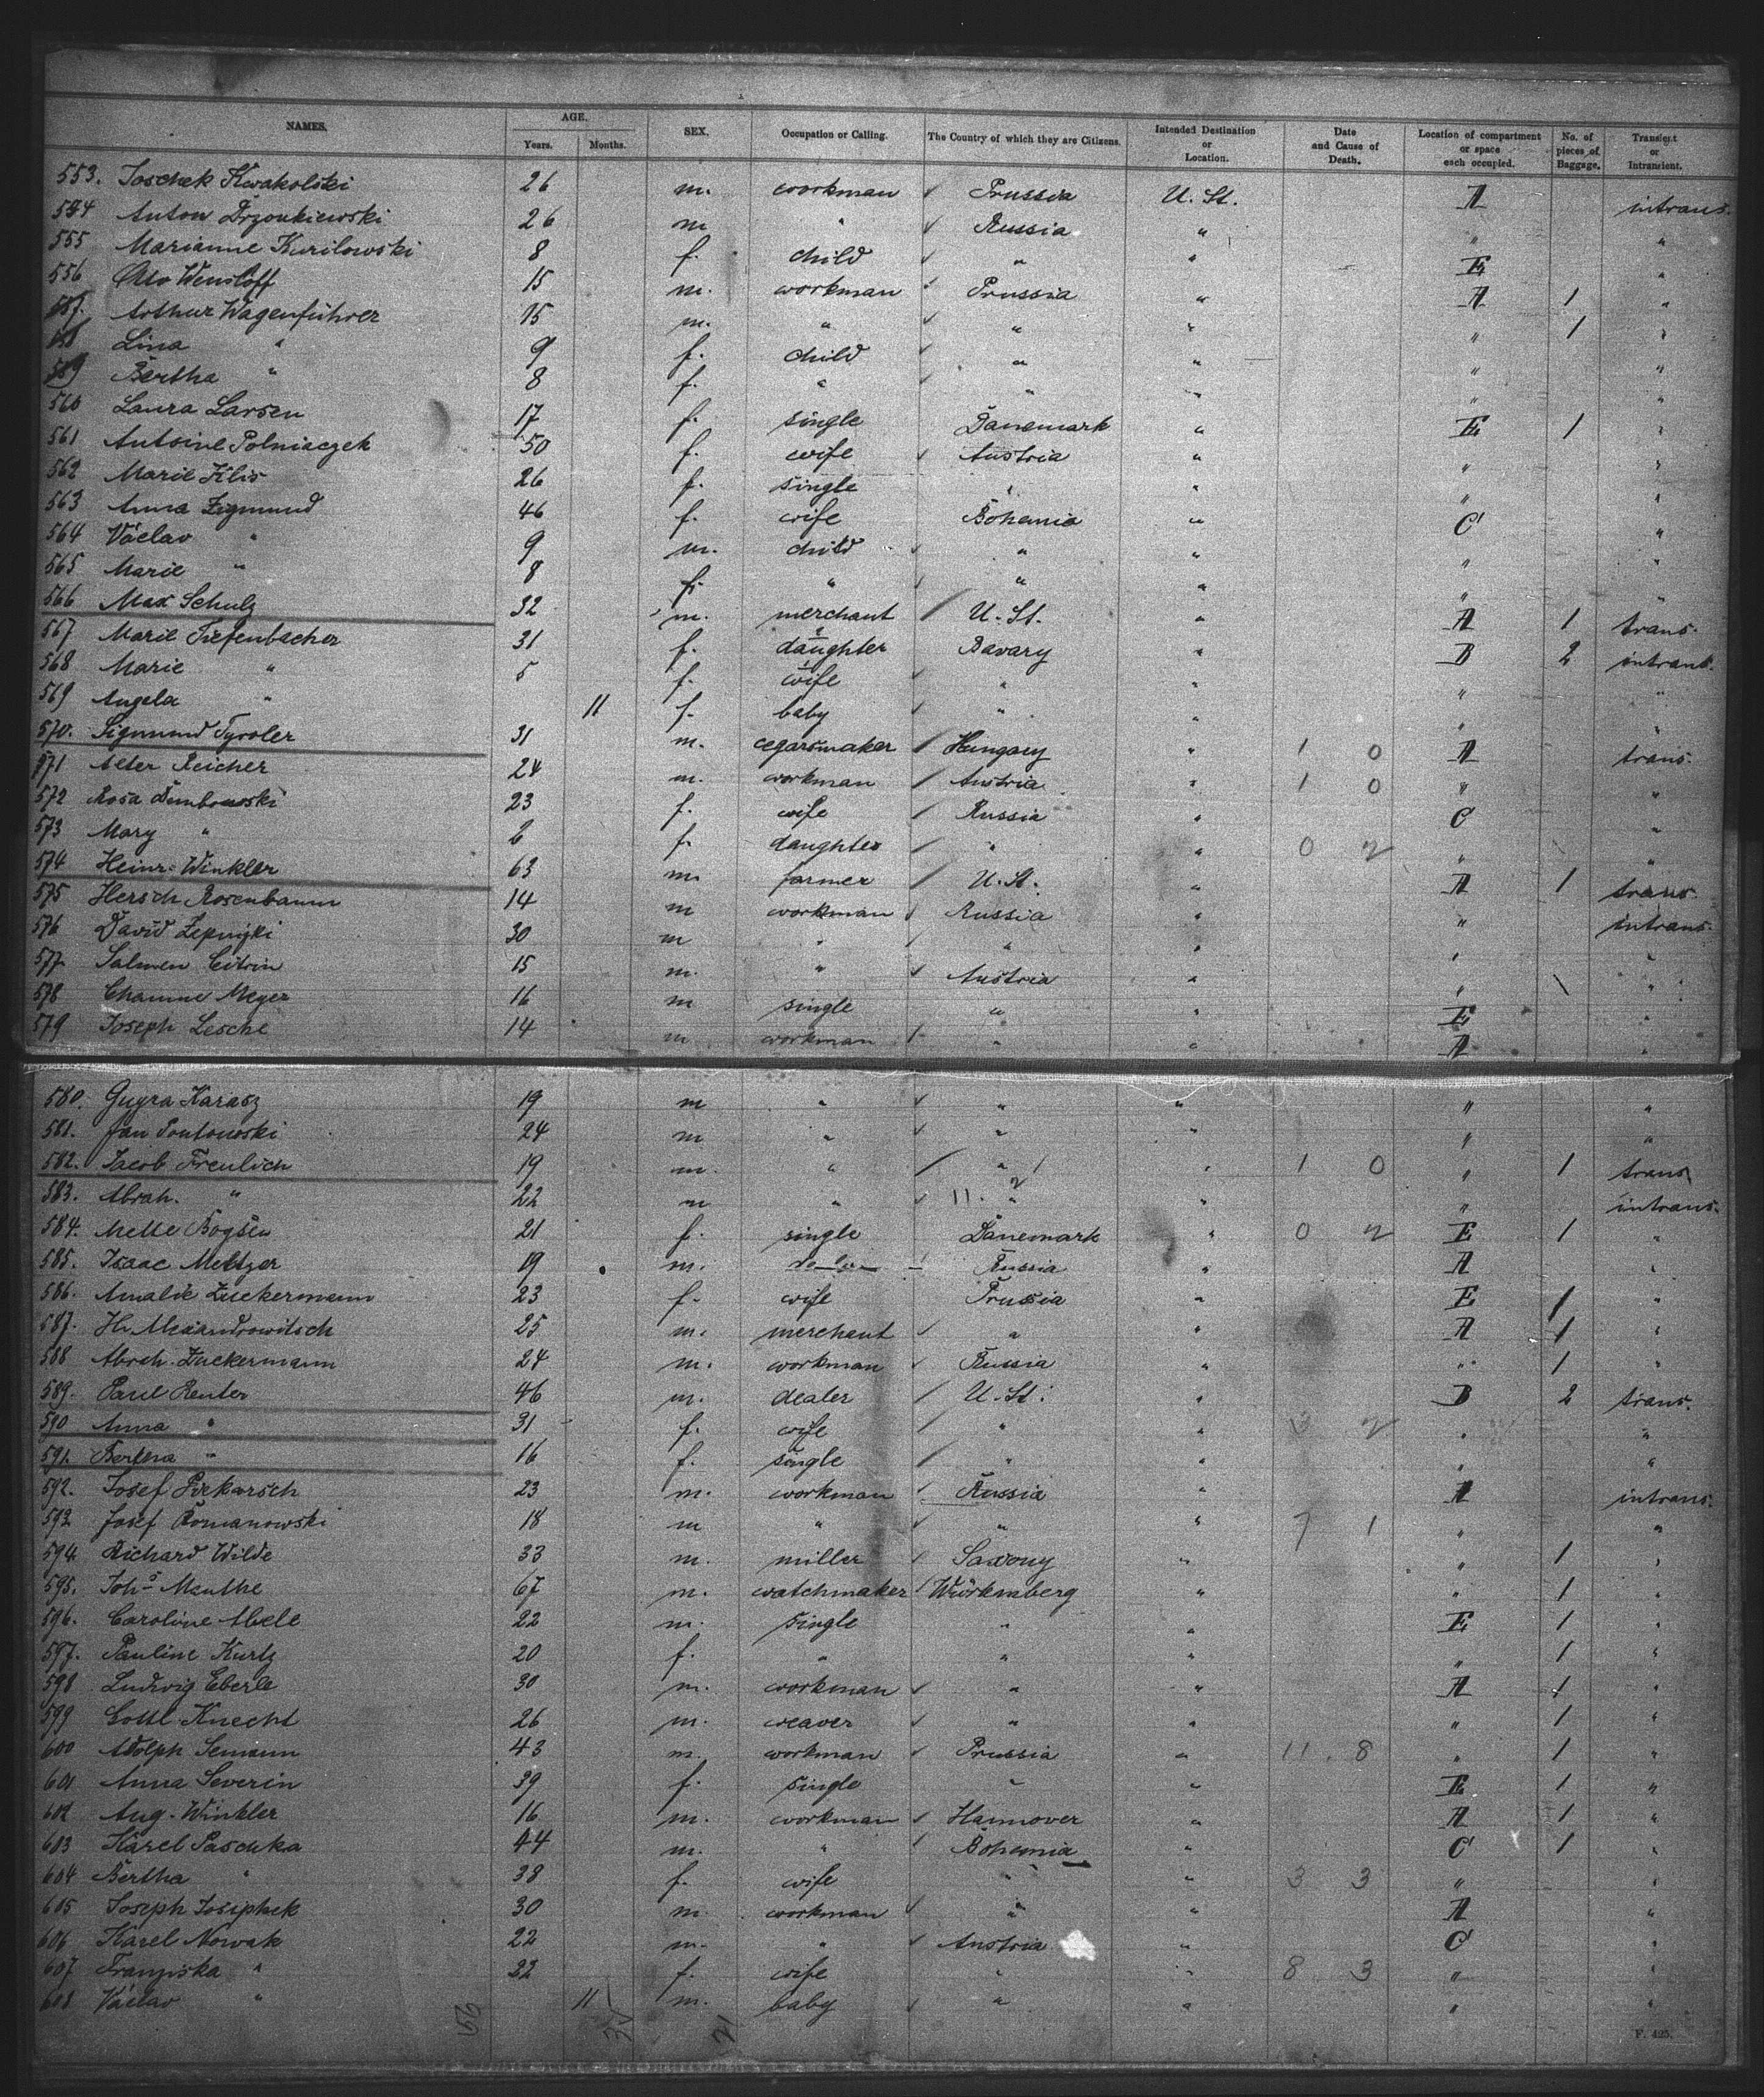 NAMES. AGE. Years. Months. SEX. Occupation or Calling. The Country of which they are Citizens. Intended Destination or Location. Date and Cause of Death. Location of compartment or space each occupied. No. of pieces of Baggage. Transient or Intransient.
553. Joschek Kwakolski 26 m. workman ✓ Prussia U. St. A intrans.
554 Anton Drzonkiewski 26 m " ✓ Russia " " "
555 Marianne Kurilowski 8 f. child ✓ " " E "
556 Otto Wensloff 15 m. workman Prussia " A 1 "
557. Arthur Wagenführer 15 m. " ✓ " " " 1 "
558 Lina " 9 f. child ✓ " " " "
559 Bertha " 8 f. " ✓ " " " "
560 Laura Larsen 17 f. single Danemark " E 1 "
561 Antoine Polniaczek 50 f. wife ✓ Austria " " "
562 Marie Klis 26 f. single " " " "
563 Anna Zigmund 46 f. wife Bohemia " C "
564 Václav " 9 m. child ✓ " " " "
565 Marie " 8 f. " ✓ " " " "
566 Max Schulz 32 m. merchant / U. St. " A 1 trans.
567 Marie Tiefenbacher 31 f. daughter Bavary " B 2 intrans.
568 Marie " 5 f. wife ✓ " " " "
569 Angela " 11 f. baby ✓ " " " "
570. Sigmund Tyroler 31 m. cegarsmaker / Hungary " 1 0 A trans.
571 Alter Reicher 24 m. workman / Austria " 1 0 " "
572 Rosa Dumbrowski 23 f. wife / Russia " C "
573 Mary " 2 f. daughter / " " 0 2 " "
574 Heinr. Winkler 63 m. farmer / U. St. " A 1 trans.
575 Hersch Rosenbaum 14 m workman ✓ Russia " " intrans.
576 David 30 m " / " " " "
577 Salmen Citrin 15 m. " ✓ Austria " " \ "
578 Channe Meyer 16 m single " " E "
579 Joseph Lesche 14 m workman " " A "
580. Gugra Karasz 19 m " ✓ " " " "
581. Jan Pontonoski 24 m " ✓ " " " "
582. Jacob Freulich 19 m. " / " " 1 0 " 1 trans
583. Abrah. " 22 m " ✓ " " " intrans.
584. Mette Bogsen 21 f. single Dänemark " 0 2 E 1 "
585. Isaac Meltzer 19 m. Russia " A "
586. Amalie Zuckermann 23 f. wife Prussia " E 1 "
587. H. Alexandrowitsch 25 m. merchant ✓ " " A 1 "
588 Abrah. Zuckermann 24 m. workman ✓ Russia " " 1 "
589. Paul Renter 46 m. dealer / U. St. " B 2 trans.
590 Anna " 31 f. wife / " " 3 2 " "
591. Bertha " 16 f. single / " " " "
592. Josef Piekarsch 23 m. workman ✓ Russia " A intrans.
593 Josef Romanowski 18 m " ✓ " " 7 1 " "
594 Richard Wilde 33 m. miller Saxony " " 1 "
595. Johs Menthe 67 m. watchmaker Würtemberg " " 1 "
596. Caroline Abele 22 m. single " " E 1 "
597. Pauline Kurtz 20 f. " " " " 1 "
598 Ludwig Eberle 30 m. workman ✓ " " A 1 "
599 Gottl. Knecht 26 m. weaver ✓ " " " 1 "
600 Adolph Semann 43 m. workman ✓ Prussia " 11. 8 " 1 "
601 Anna Severin 39 f. single " " E 1 "
602 Aug. Winkler 16 m. workman ✓ Hannover " A 1 "
603 Karel Paschka 44 m. " Bohemia " C 1 "
604 Bertha " 38 f. wife " " 3 3 " "
605 Joseph Josiphek 30 m. workman ✓ " " A "
606 Karel Nowak 22 m. " ✓ Austria " C "
607 Franziska " 22 f. wife " " 8 3 " "
608 Václav " 11 m. baby ✓ " " " "
F. 425.